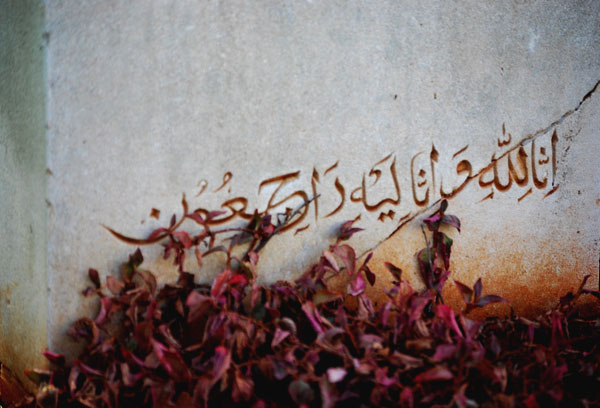 انا لله وانا لیه راجعون